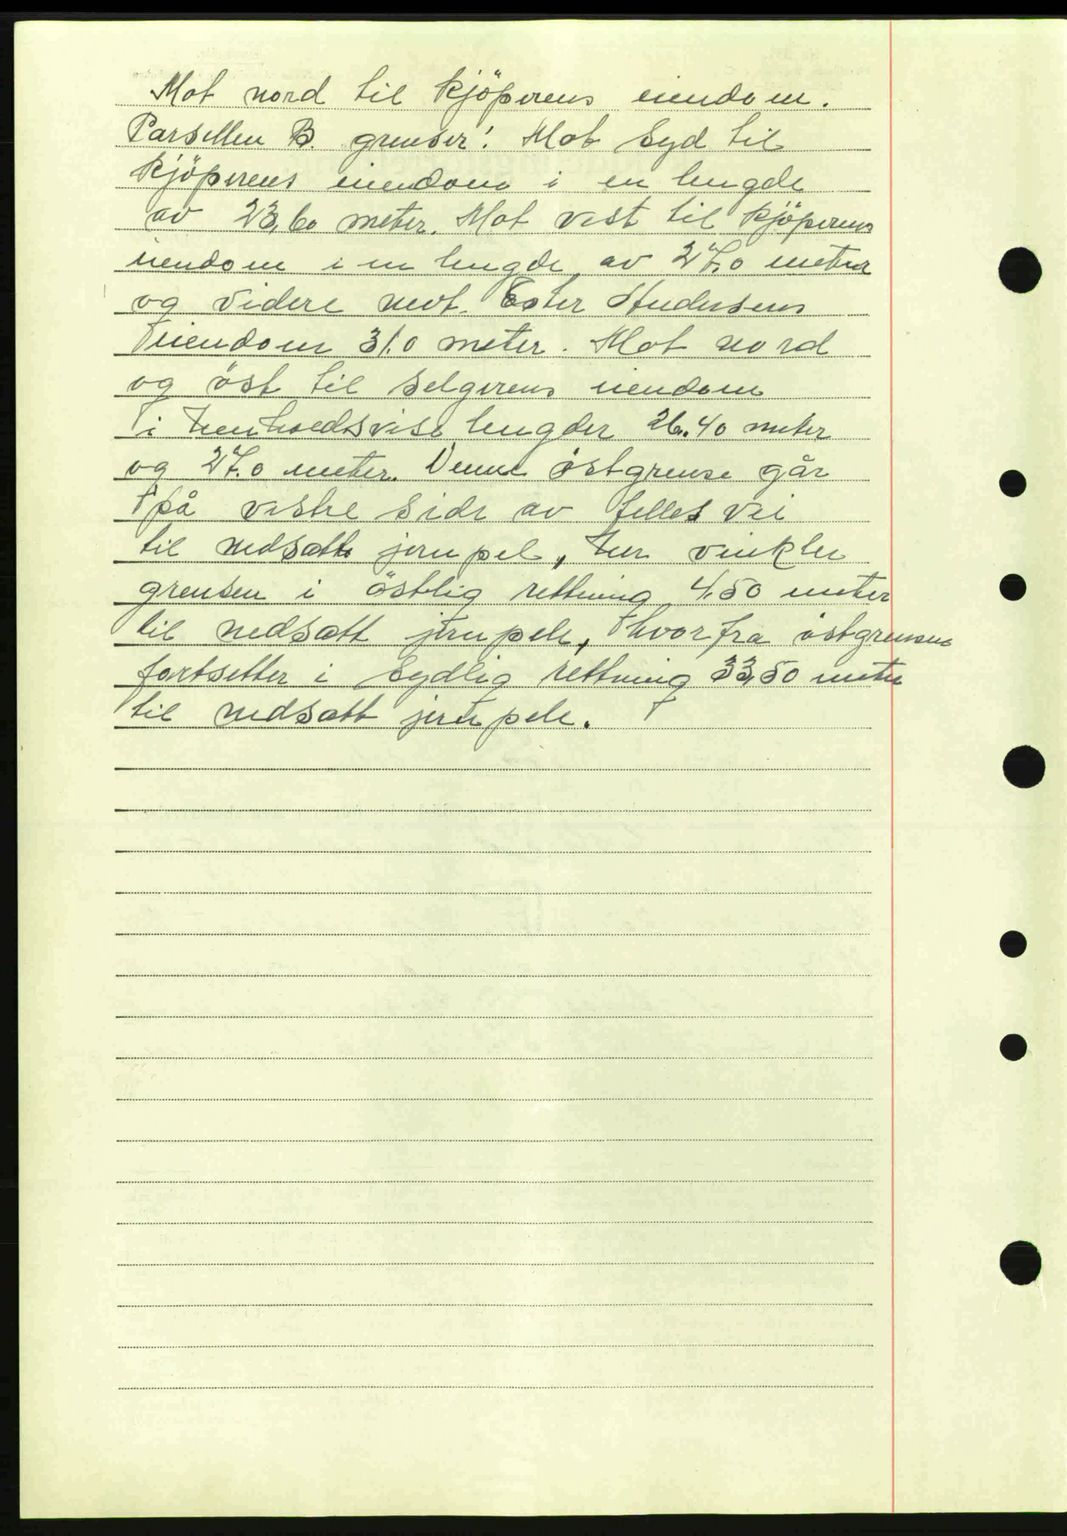 Mot nord til kjöperens eiendom.
Parsellen B. grenser: Mot Syd til
kjöperens eiendom i en lengde
av 23,60 meter. Mot vest til kjöperens
eiendom i en lengde av 27,0 meter
og videre mot Ester Andersens
eiendom 31.0 meter. Mot nord
og öst til selgerens eiendom
i henholdsvise lengder 26.40 meter
og 27.0 meter. Denne östgrense går
på vestre side av felles vei
til nedsatt jernpel, her vinkler
grensen i östlig rettning 4,50 meter
til nedsatt jernpele, hvorfra östgrensen
fortsetter i Sydlig rettning 33,50 meter
til nedsatt jernpele.